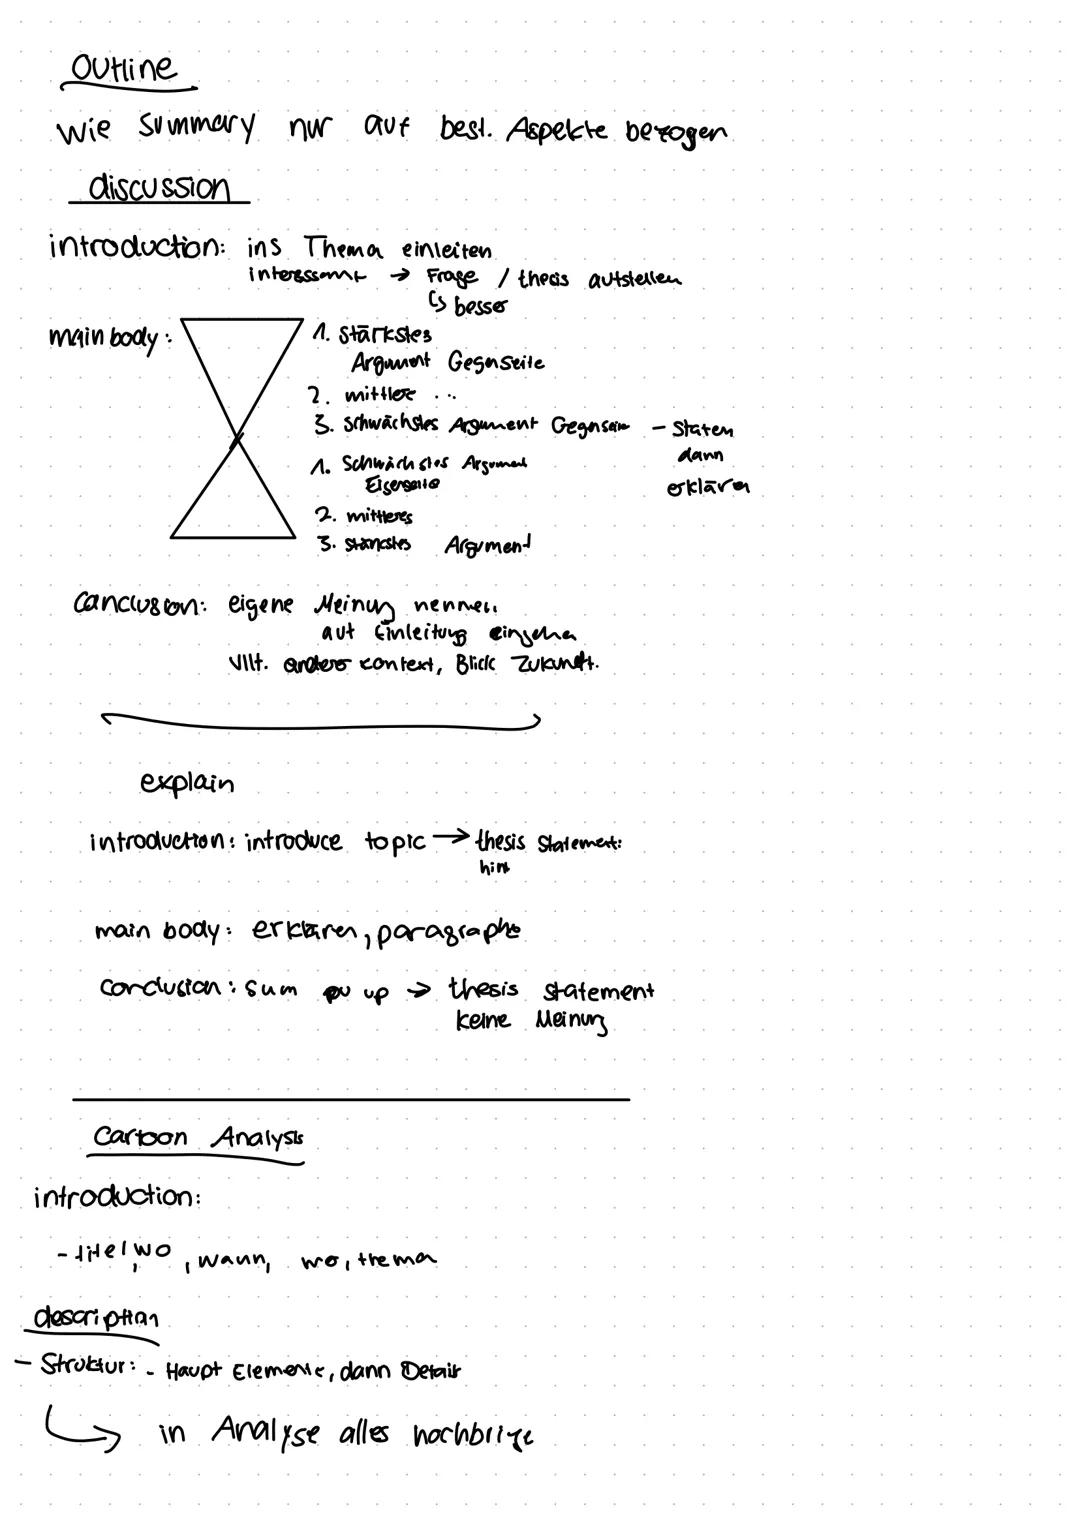 Outline
Wie summary nur auf best. Aspekte bezogen
discussion
introduction: ins Thema einleiten
interessant → Frage / thesis aufstellen
↳ besser
main body:
1. Stärkstes
Argument Gegenseite
2. mittlere ...
3. Schwächstes Argument Gegenseite - Staten
dann
erklären
1. Schwächstes Argument
Eigenseite
2. mittleres
3. stärkstes Argument
conclusion: eigene Meinung nennen
auf Einleitung eingehen
Vllt. anderer context, Blick Zukunft.
explain
introduction: introduce topic → thesis statement:
hint
main body: erklären, paragraphs
conclusion: sum up → thesis statement
keine Meinung
Cartoon Analysis
introduction:
- titel, wo, wann, wo, thema
description
- Struktur: - Haupt Elemente, dann Detail
↳ in Analyse alles nachbringe